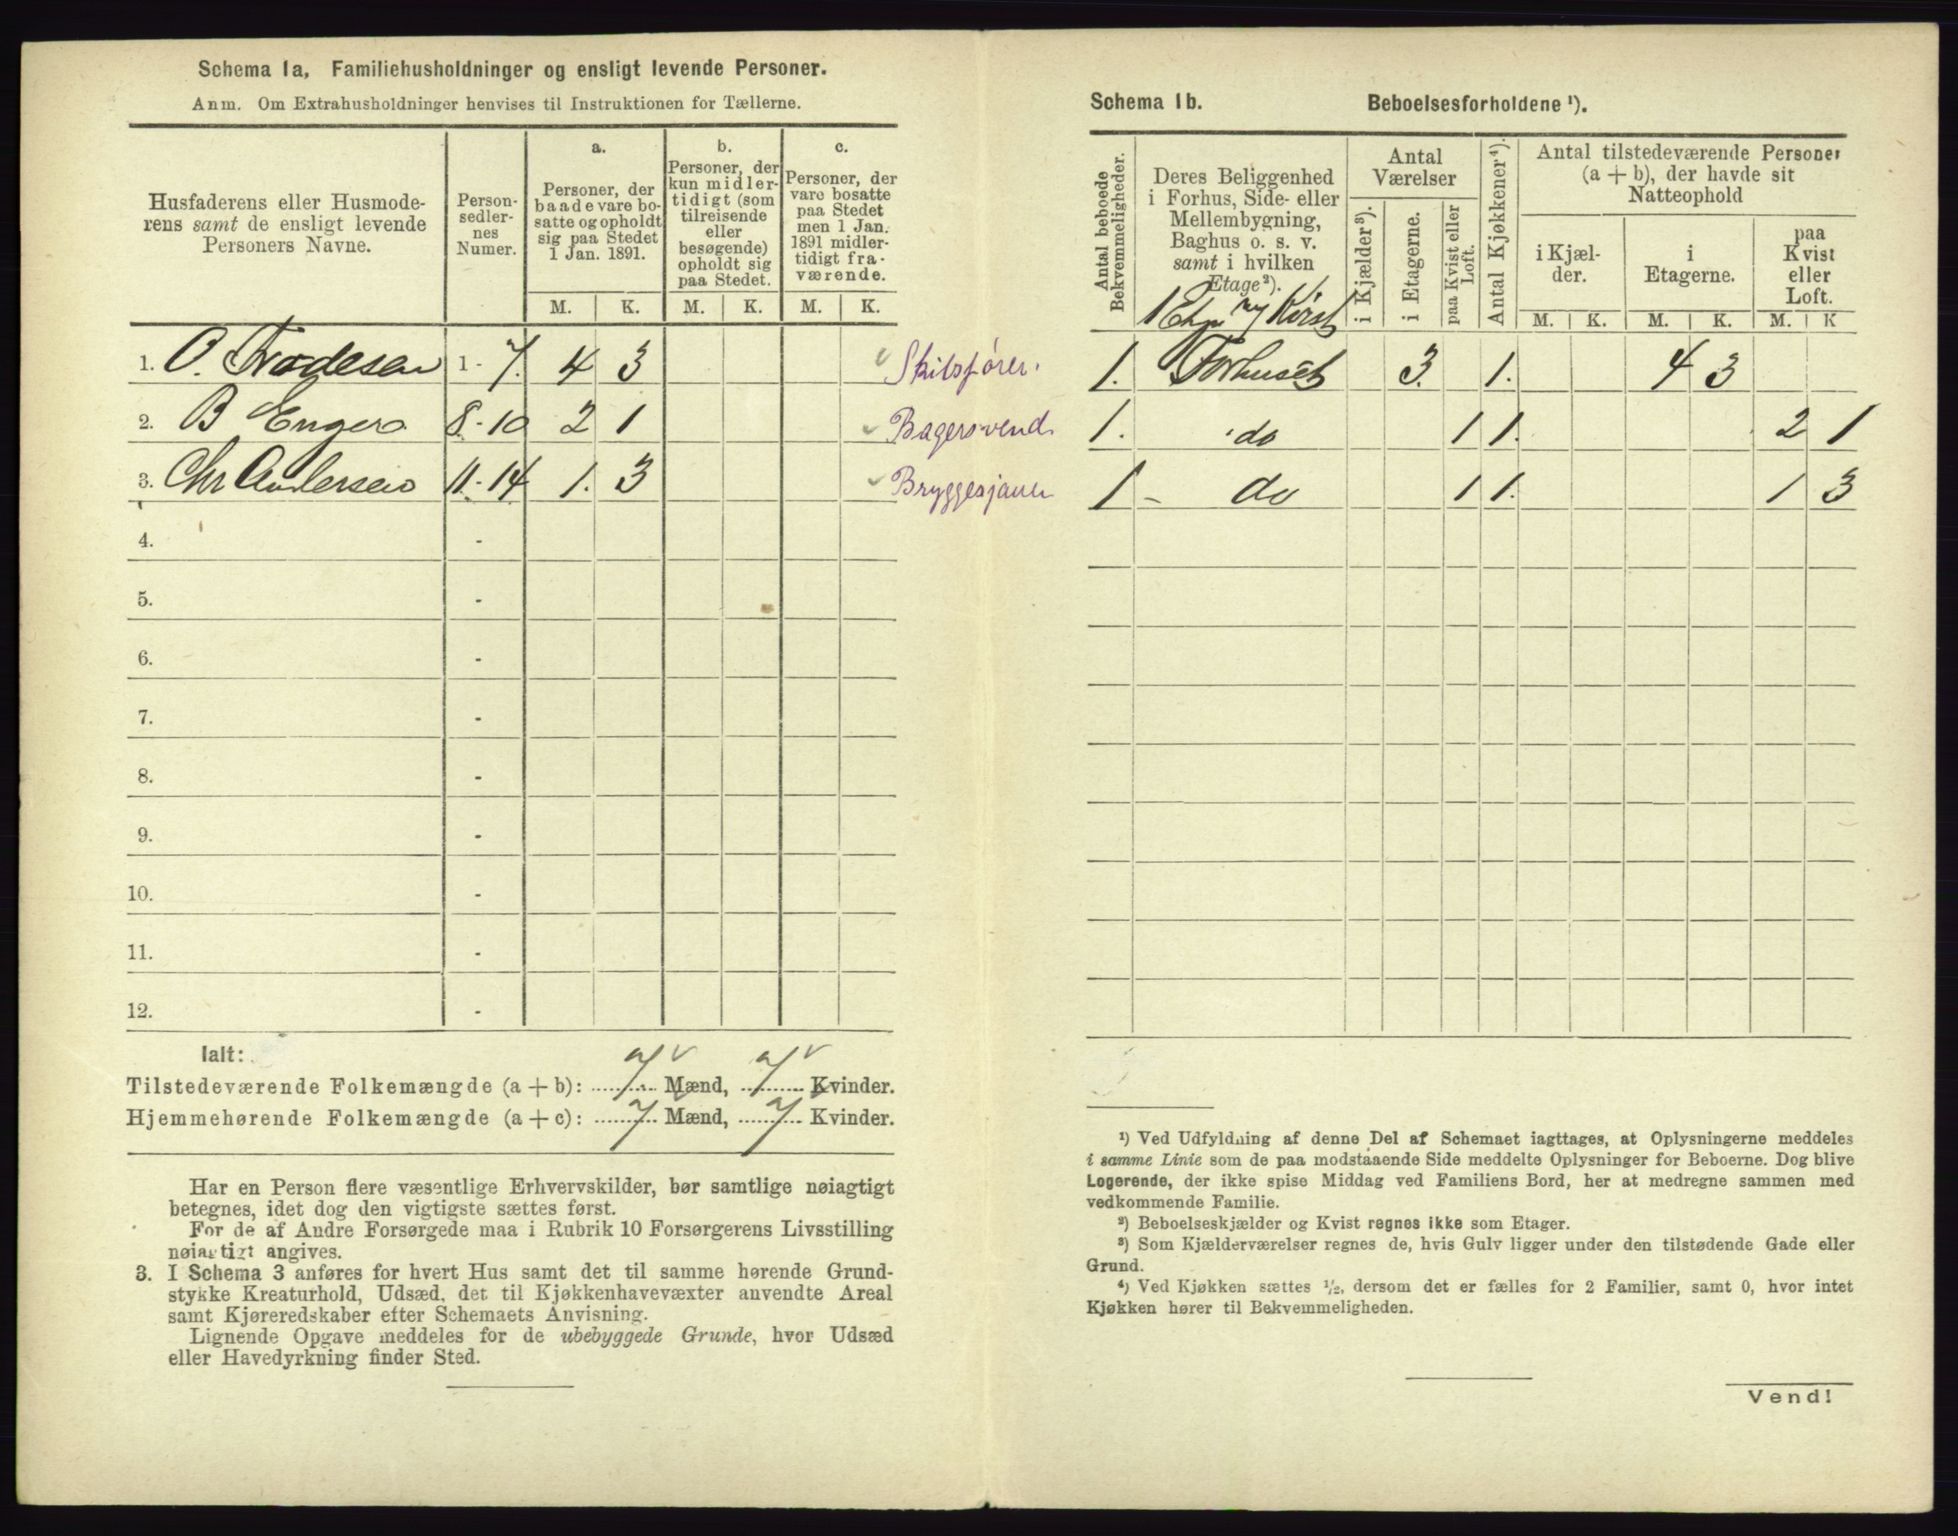 Schema 1a, Familiehusholdninger og ensligt levende Personer.
Anm. Om Extrahusholdninger henvises til Instruktionen for Tællerne.
Husfaderens eller Husmoderens samt de ensligt levende Personers Navne.
Personsedlernes Numer.
a.
Personer, der baade vare bosatte og opholdt sig paa Stedet 1 Jan. 1891.
b.
Personer, der kun midlertidigt (som tilreisende eller besøgende) opholdt sig paa Stedet.
c.
Personer, der vare bosatte paa Stedet men 1 Jan. 1891 midlertidigt fraværende.
M. K. M. K. M. K.
1. O. Frodesen 1-7. 4 3 Skibsfører.
2. B Engero 8-10 2 1 Bagersvend.
3. Chr Andersen 11-14 1. 3 Bryggesjauer
4. -
5. -
6. -
7. -
8. -
9. -
10. -
11. -
12. -
Ialt:
Tilstedeværende Folkemængde (a + b): 7 Mænd, 7 Kvinder.
Hjemmehørende Folkemængde (a + c): 7 Mænd, 7 Kvinder.
Har en Person flere væsentlige Erhvervskilder, bør samtlige nøiagtigt
betegnes, idet dog den vigtigste sættes først.
For de af Andre Forsørgede maa i Rubrik 10 Forsørgerens Livsstilling
nøiagtigt angives.
3. I Schema 3 anføres for hvert Hus samt det til samme hørende Grund-
stykke Kreaturhold, Udsæd, det til Kjøkkenhavevæxter anvendte Areal
samt Kjøreredskaber efter Schemaets Anvisning.
Lignende Opgave meddeles for de ubebyggede Grunde, hvor Udsæd
eller Havedyrkning finder Sted.
Schema 1b. Beboelsesforholdene ¹).
Antal beboede Bekvemmeligheder.
Deres Beliggenhed i Forhus, Side- eller Mellembygning, Baghus o. s. v. samt i hvilken Etage²).
Antal Værelser
i Kjælder³).
i Etagerne.
paa Kvist eller Loft.
Antal Kjøkkener⁴).
Antal tilstedeværende Personer (a + b), der havde sit Natteophold
i Kjælder.
i Etagerne.
paa Kvist eller Loft.
M. K. M. K. M. K
1 Etage og Kvist
1. Forhuset 3. 1. 4 3
1. do 1 1. 2 1
1 - do 1 1. 1 3
¹) Ved Udfyldning af denne Del af Schemaet iagttages, at Oplysningerne meddeles
i samme Linie som de paa modstaaende Side meddelte Oplysninger for Beboerne. Dog blive
Logerende, der ikke spise Middag ved Familiens Bord, her at medregne sammen med
vedkommende Familie.
²) Beboelseskjælder og Kvist regnes ikke som Etager.
³) Som Kjælderværelser regnes de, hvis Gulv ligger under den tilstødende Gade eller
Grund.
⁴) Ved Kjøkken sættes ½, dersom det er fælles for 2 Familier, samt 0, hvor intet
Kjøkken hører til Bekvemmeligheden.
Vend!